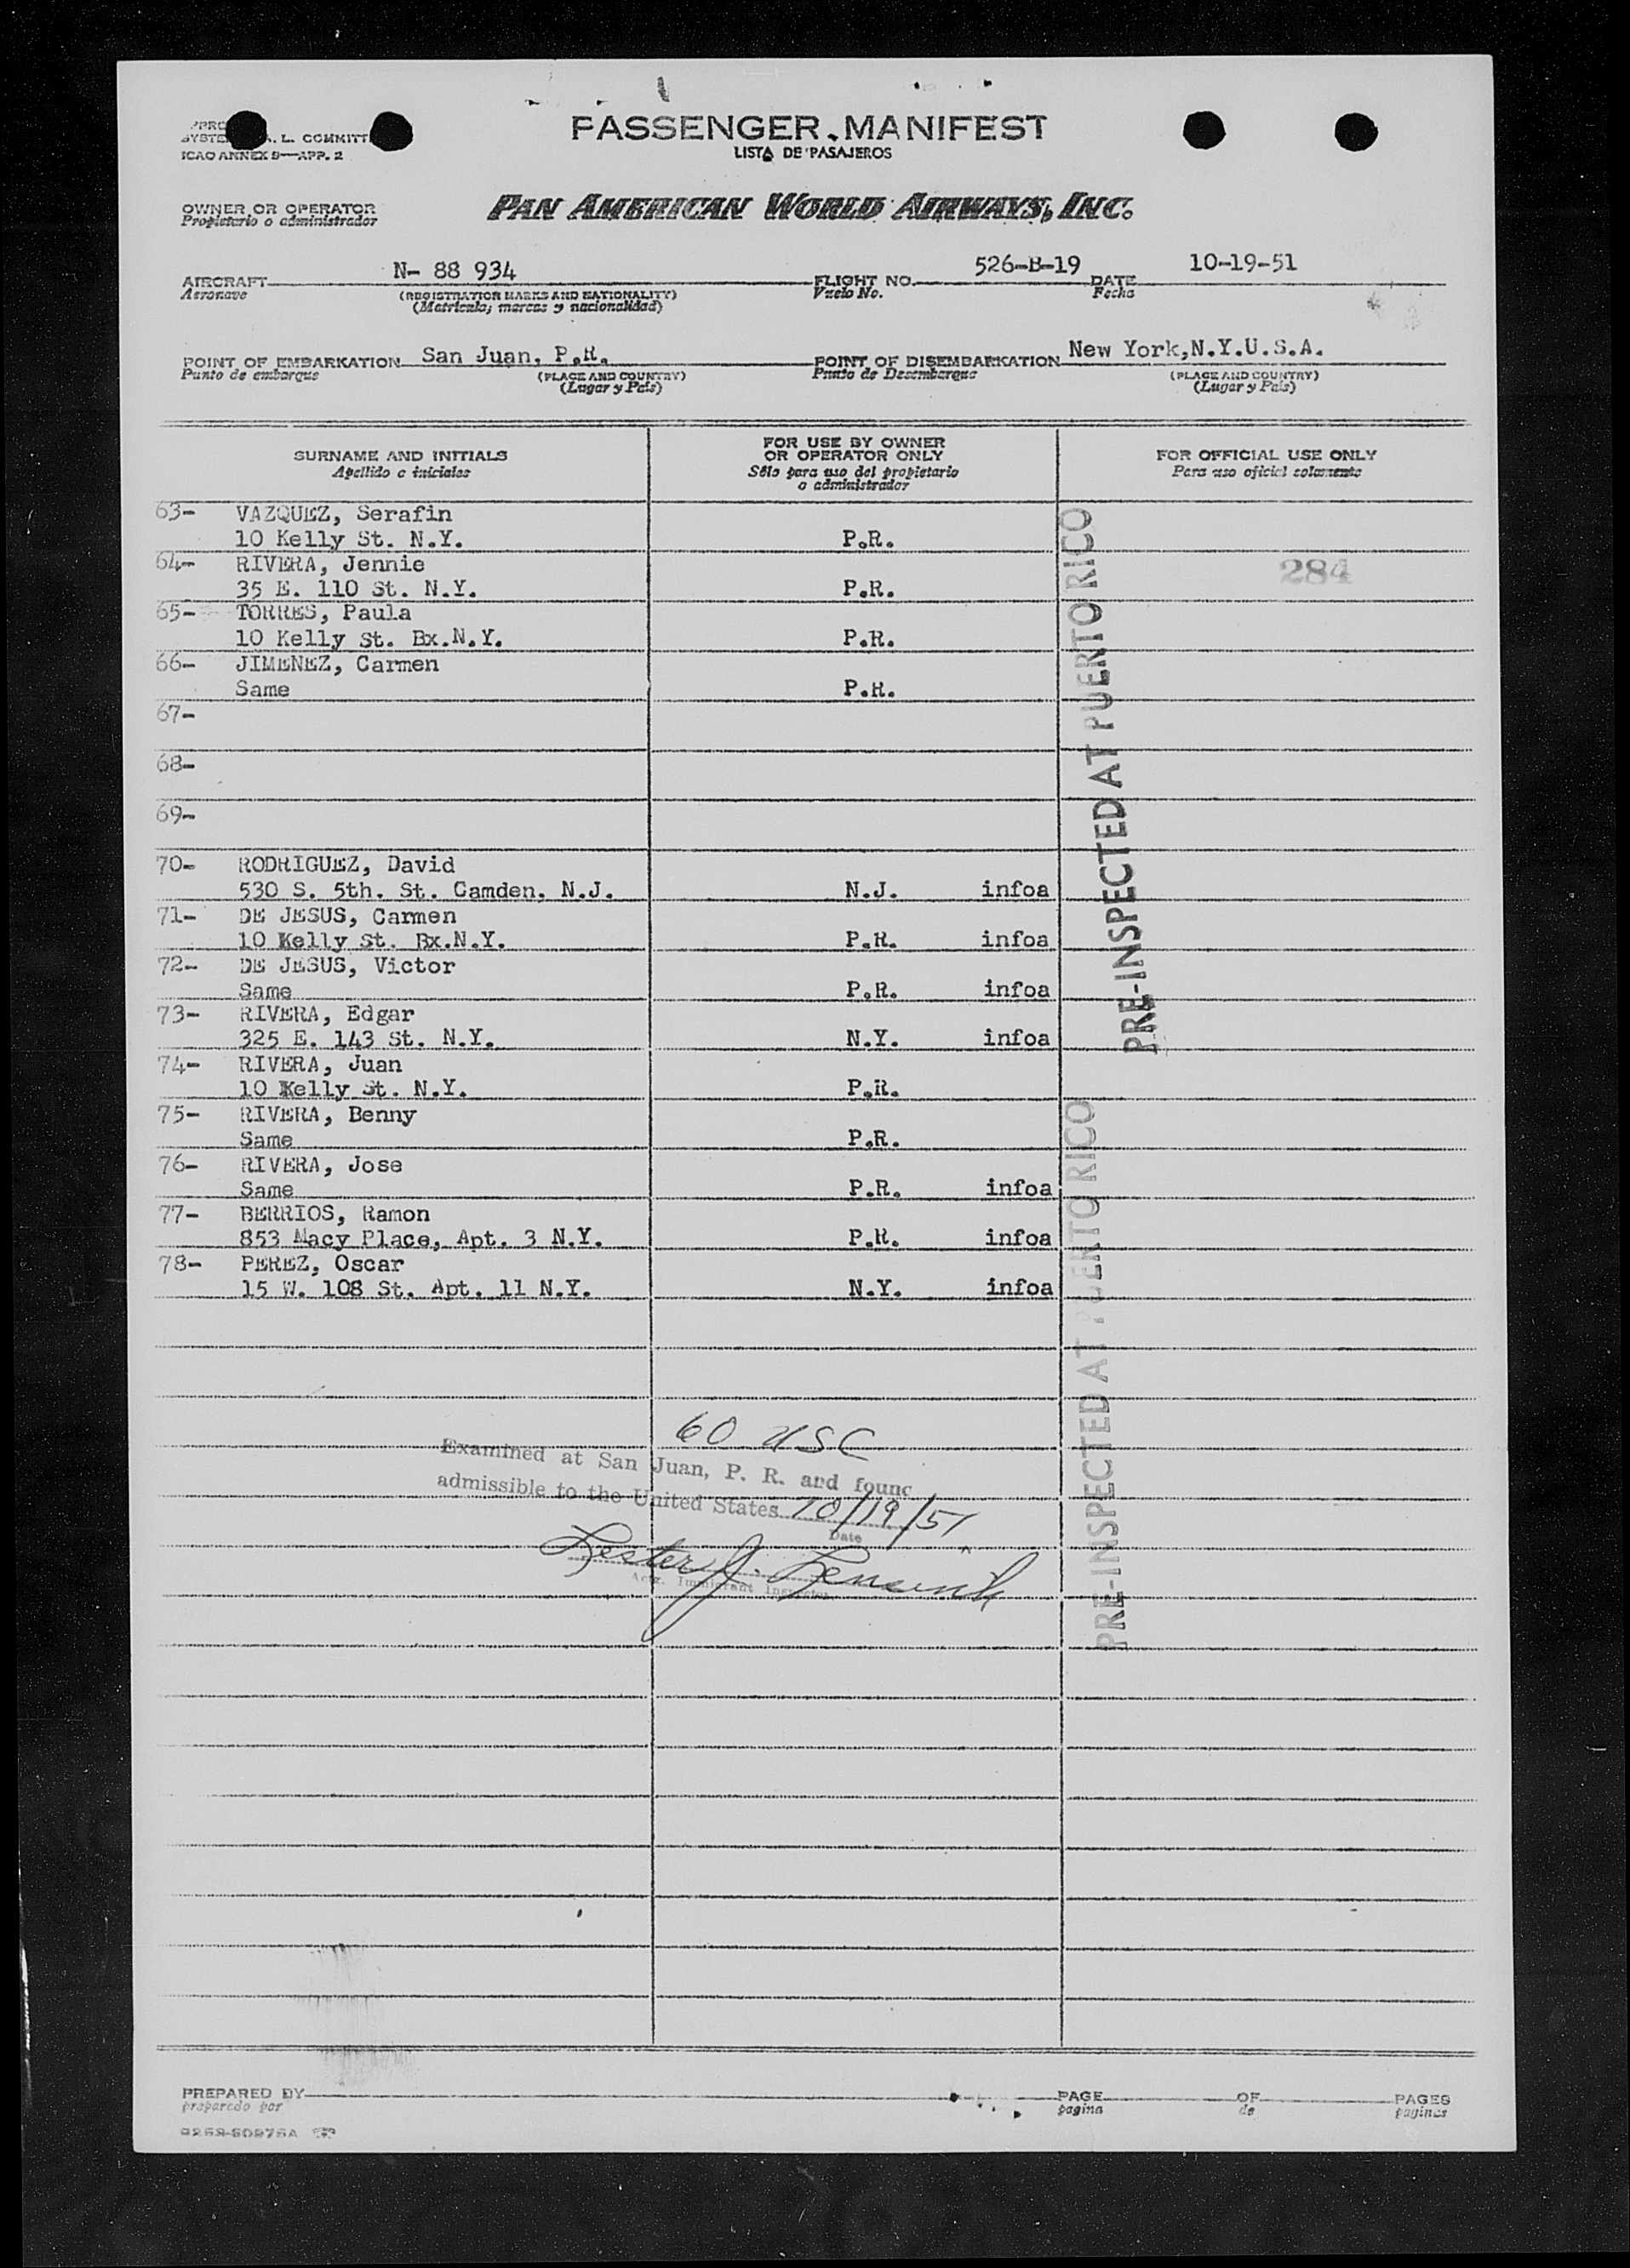 PASSENGER MANIFEST
LISTA DE PASAJEROS
ICAO ANNEX 9—APP. 2
OWNER OR OPERATOR
Propietario o administrador
PAN AMERICAN WORLD AIRWAYS, INC.
AIRCRAFT N- 88 934 FLIGHT NO. 526-B-19 DATE 10-19-51
Aeronave (REGISTRATION MARKS AND NATIONALITY) Vuelo No. Fecha
(Matricula; marcas y nacionalidad)
POINT OF EMBARKATION San Juan, P.R. POINT OF DISEMBARKATION New York,N.Y.U.S.A.
Punto de embarque (PLACE AND COUNTRY) Punto de Desembarque (PLACE AND COUNTRY)
(Lugar y Pais) (Lugar y Pais)
SURNAME AND INITIALS
Apellido e iniciales
FOR USE BY OWNER
OR OPERATOR ONLY
Sólo para uso del propietario
o administrador
FOR OFFICIAL USE ONLY
Para uso oficial solamente
63- VAZQUEZ, Serafin
10 Kelly St. N.Y. P.R.
64- RIVERA, Jennie 284
35 E. 110 St. N.Y. P.R.
65- TORRES, Paula
10 Kelly St. Bx.N.Y. P.R.
66- JIMENEZ, Carmen
Same P.R.
67-
68-
69-
70- RODRIGUEZ, David
530 S. 5th. St. Camden, N.J. N.J. infoa
71- DE JESUS, Carmen
10 Kelly St. Bx.N.Y. P.R. infoa
72- DE JESUS, Victor
Same P.R. infoa
73- RIVERA, Edgar
325 E. 143 St. N.Y. N.Y. infoa
74- RIVERA, Juan
10 Kelly St. N.Y. P.R.
75- RIVERA, Benny
Same P.R.
76- RIVERA, Jose
Same P.R. infoa
77- BERRIOS, Ramon
853 Macy Place, Apt. 3 N.Y. P.R. infoa
78- PEREZ, Oscar
15 W. 108 St. Apt. 11 N.Y. N.Y. infoa
PRE-INSPECTED AT PUERTO RICO
PRE-INSPECTED AT PUERTO RICO
60 USC
Examined at San Juan, P. R. and found
admissible to the United States 10/19/51
Date
Lester J.
Actg. Immigrant Inspector
PREPARED BY PAGE OF PAGES
preparado por pagina de paginas